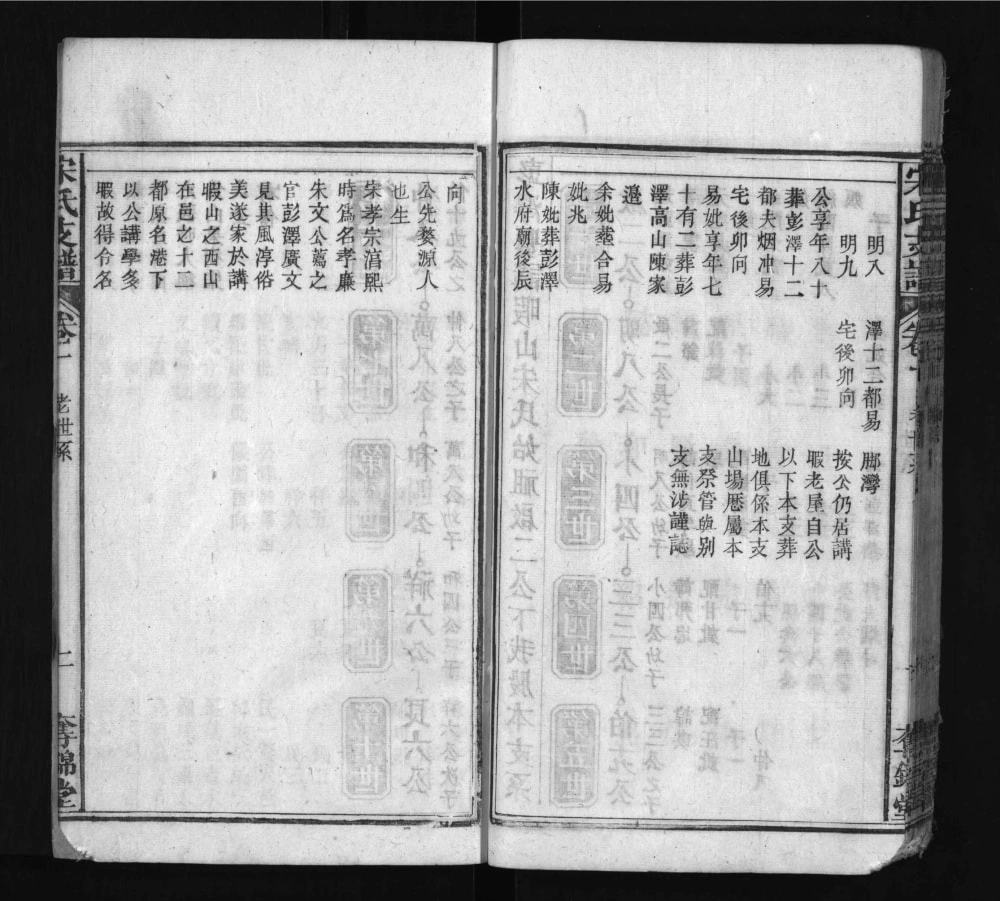 明八
明九
公享年八十
葬彭澤十二
都夫烟冲易
宅後卯向
易妣享年七
十有二葬彭
澤高山陳家
邉
余妣塟合易
妣兆
陳妣葬彭澤
水府廟後辰
澤十二都易
宅後卯向
脚灣
按公仍居講
暇老屋自公
以下本支葬
地俱係本支
山場歴屬本
支祭管與别
支無涉謹誌
宋氏支譜
老世系
二
奪錦堂
向
公先婺源人
也生
宋孝宗湻熙
時爲名孝廉
朱文公薦之
官彭澤廣文
見其風淳俗
美遂家於講
暇山之西山
在邑之十二
都原名港下
以公講學多
暇故得今名
宋氏支譜
卷一
老世系
二
奪錦堂